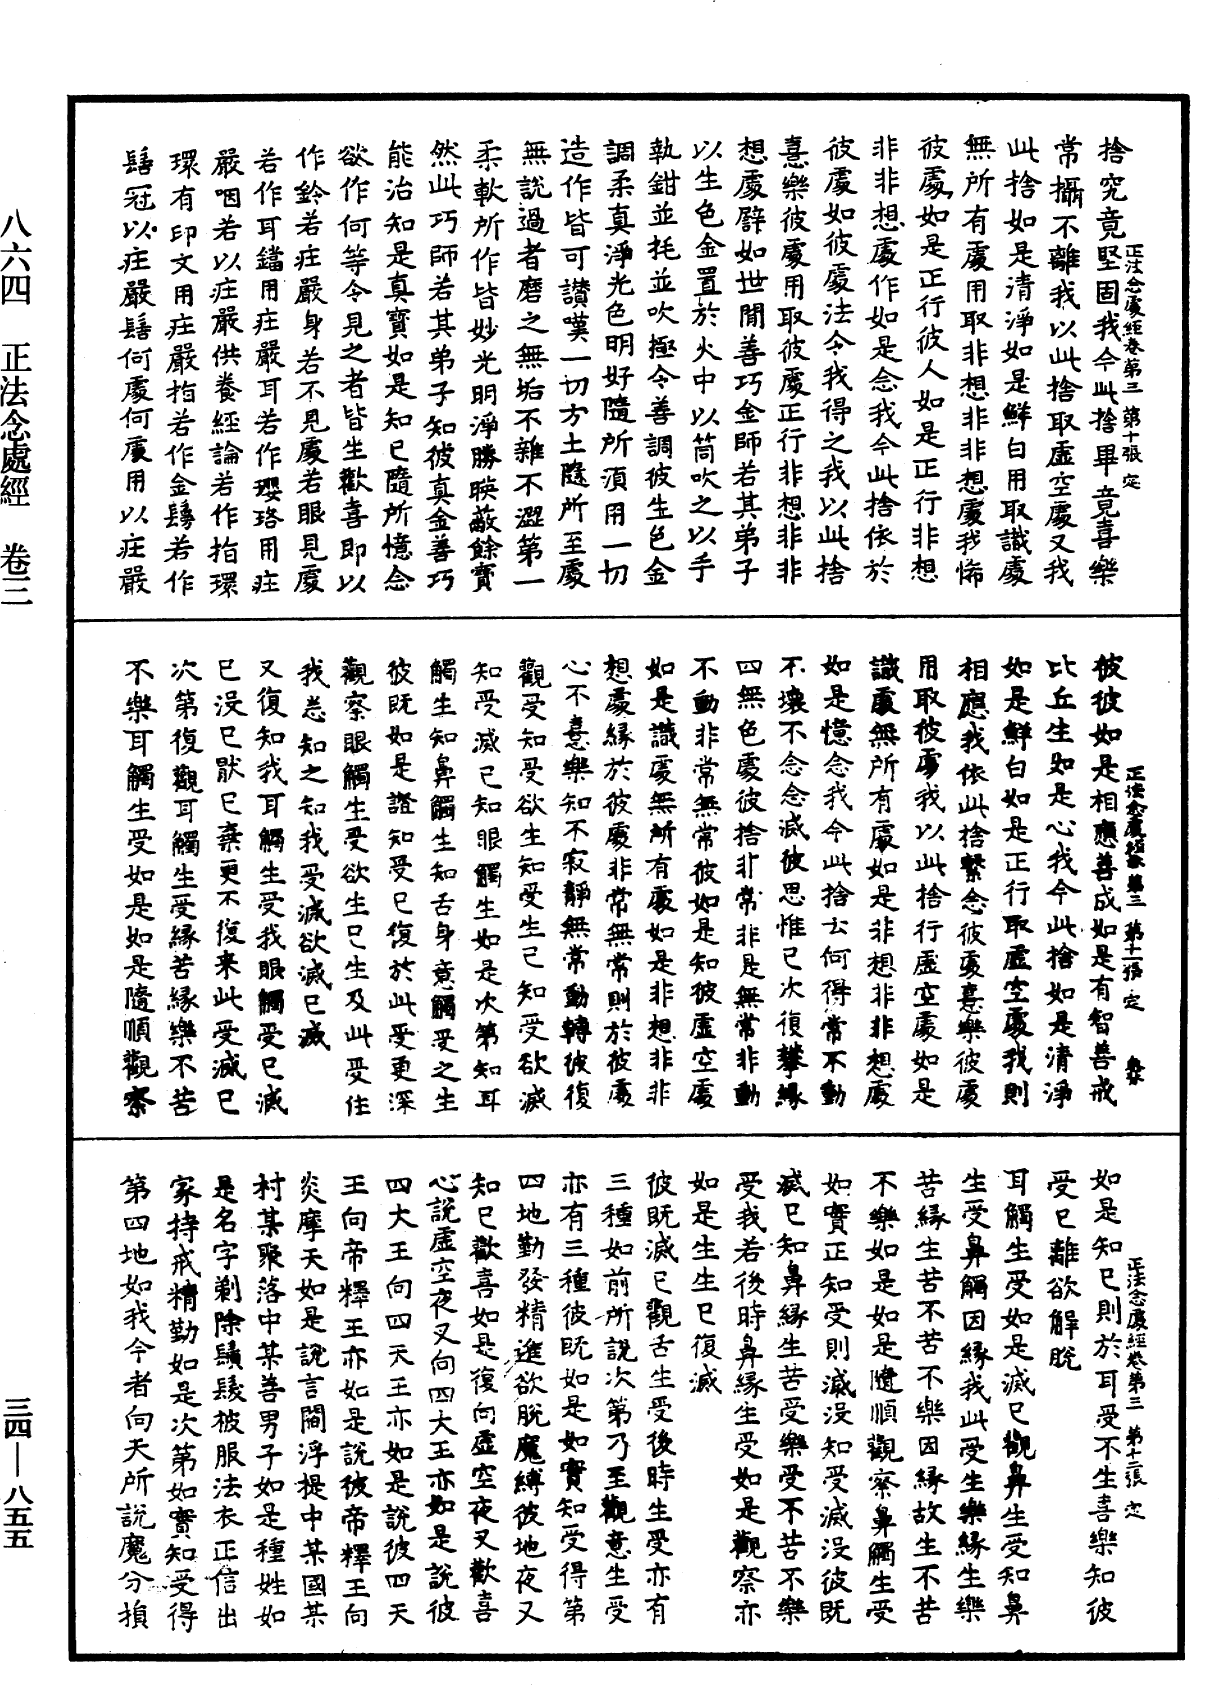 捨究竟堅固我今此捨畢竟喜樂
正法念處經卷第三 第十張 定
常攝不離我以此捨取虛空處又我
此捨如是清淨如是鮮白用取識處
無所有處用取非想非非想處我悕
彼處如是正行彼人如是正行非想
非非想處作如是念我今此捨依於
彼處如彼處法令我得之我以此捨
憙樂彼處用取彼處正行非想非非
想處譬如世間善巧金師若其弟子
以生色金置於火中以筒吹之以手
執鉗並㧌並吹極令善調彼生色金
調柔真淨光色明好隨所須用一切
造作皆可讃嘆一切方土隨所至處
無說過者磨之無垢不雜不澀第一
柔軟所作皆妙光明淨勝暎蔽餘寶
然此巧師若其弟子知彼真金善巧
能治知是真寶如是知已隨所憶念
欲作何等令見之者皆生歡喜即以
作鈴若莊嚴身若不見處若眼見處
若作耳鐺用莊嚴耳若作瓔珞用莊
嚴咽若以莊嚴供養經論若作指環
環有印文用莊嚴指若作金鬘若作
髻冠以莊嚴髻何處何處用以莊嚴
彼彼如是相應善成如是有智善戒
正法念處經卷第三 第十一張 定
比丘生如是心我今此捨如是清淨
如是鮮白如是正行取虛空處我則
相應我依此捨繫念彼處憙樂彼處
用取彼處我以此捨行虛空處如是
識處無所有處如是非想非非想處
如是憶念我今此捨云何得常不動
不壞不念念滅彼思惟已次復攀緣
四無色處彼捨非常非是無常非動
不動非常無常彼如是知彼虛空處
如是識處無所有處如是非想非非
想處緣於彼處非常無常則於彼處
心不憙樂知不寂靜無常動轉彼復
觀受知受欲生知受生已知受欲滅
知受滅已知眼觸生如是次第知耳
觸生知鼻觸生知舌身意觸受之生
彼既如是證知受已復於此受更深
觀察眼觸生受欲生已生及此受住
我悉知之知我受滅欲滅已滅
又復知我耳觸生受我眼觸受已滅
已沒已猒已棄更不復来此受滅已
次第復觀耳觸生受緣苦緣樂不苦
不樂耳觸生受如是如是隨順觀察
如是知已則於耳受不生喜樂知彼
正法念處經卷第三 第十二張 定
受已離欲解脫
耳觸生受如是滅已觀鼻生受知鼻
生受鼻觸因緣我此受生樂緣生樂
苦緣生苦不苦不樂因緣故生不苦
不樂如是如是隨順觀察鼻觸生受
如實正知受則滅沒知受滅沒彼既
滅已知鼻緣生苦受樂受不苦不樂
受我若後時鼻緣生受如是觀察亦
如是生生已復滅
彼既滅已觀舌生受後時生受亦有
三種如前所說次第乃至觀意生受
亦有三種彼既如是如實知受得第
四地勤發精進欲脫魔縛彼地夜叉
知已歡喜如是復向虛空夜叉歡喜
心說虛空夜叉向四大王亦如是說彼
四大王向四天王亦如是說彼四天
王向帝釋王亦如是說彼帝釋王向
炎摩天如是說言閻浮提中某國某
村某聚落中某善男子如是種姓如
是名字剃除鬚髮被服法衣正信出
家持戒精勤如是次第如實知受得
第四地如我今者向天所說魔分損
八六四 正法念處經 卷三
三四—八五五